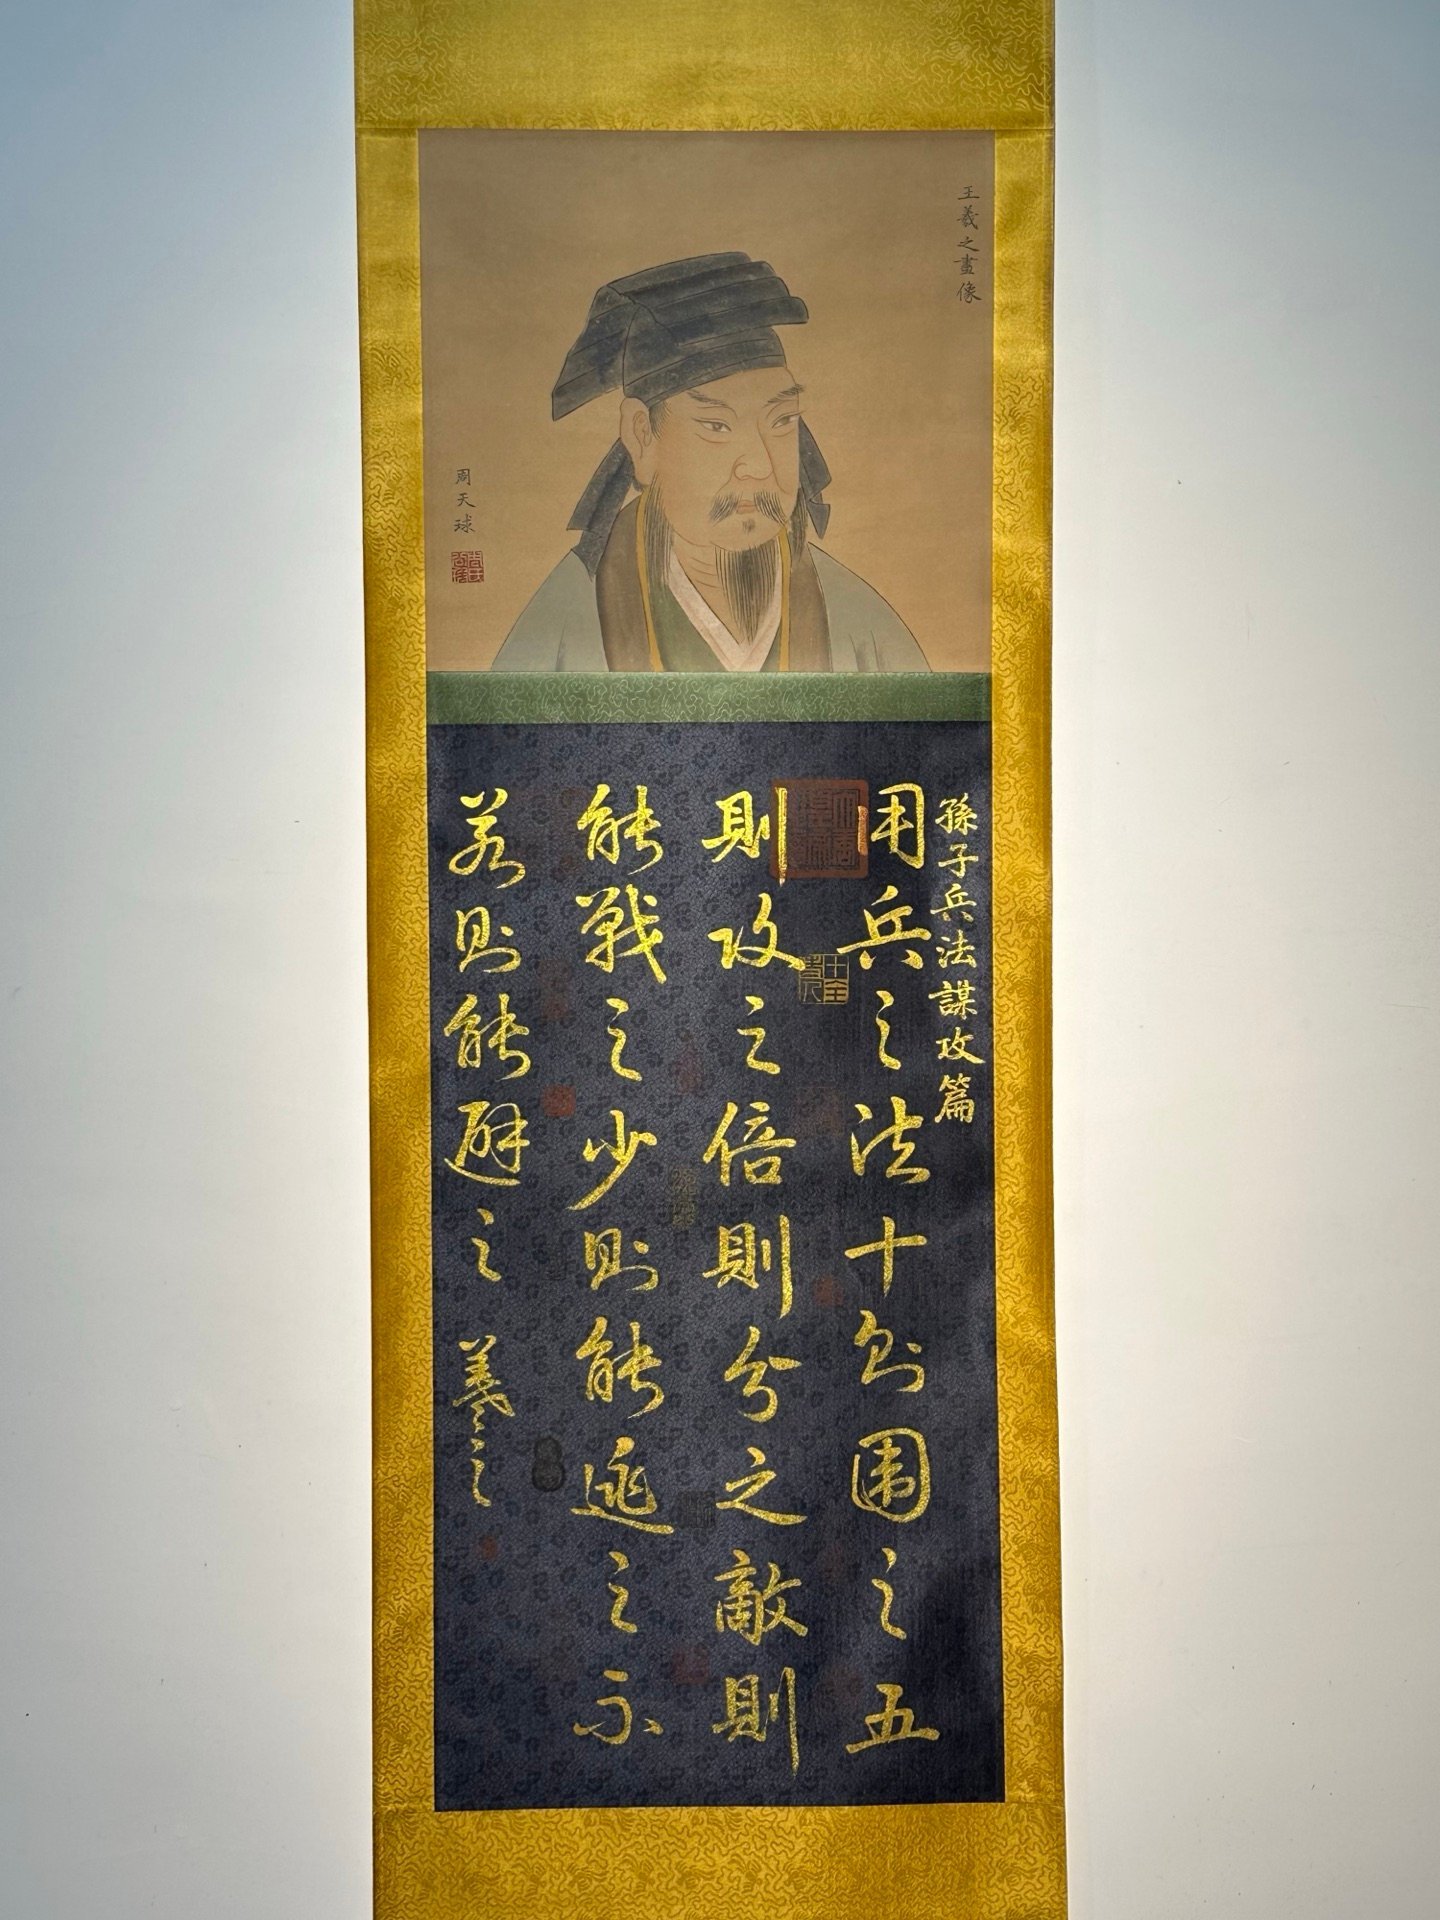 王羲之畫像
周天球
孫子兵法謀攻篇
用兵之法十則圍之五
則攻之倍則分之敵則
能戰之少則能逃之不
若則能避之
羲之